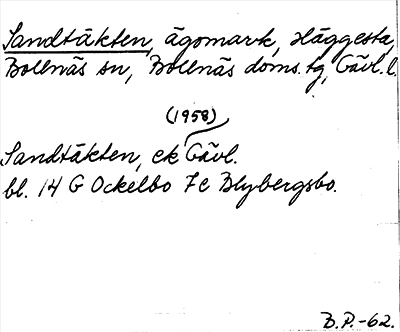 Sandtäkten, ägomark, Häggesta,
Bollnäs sn, Bollnäs doms.tg, Gävl.l.
(1958)
Sandtäkten, ek Gävl.
bl. 14 G Ockelbo 7c Blybergsbo.
B.P.-62.